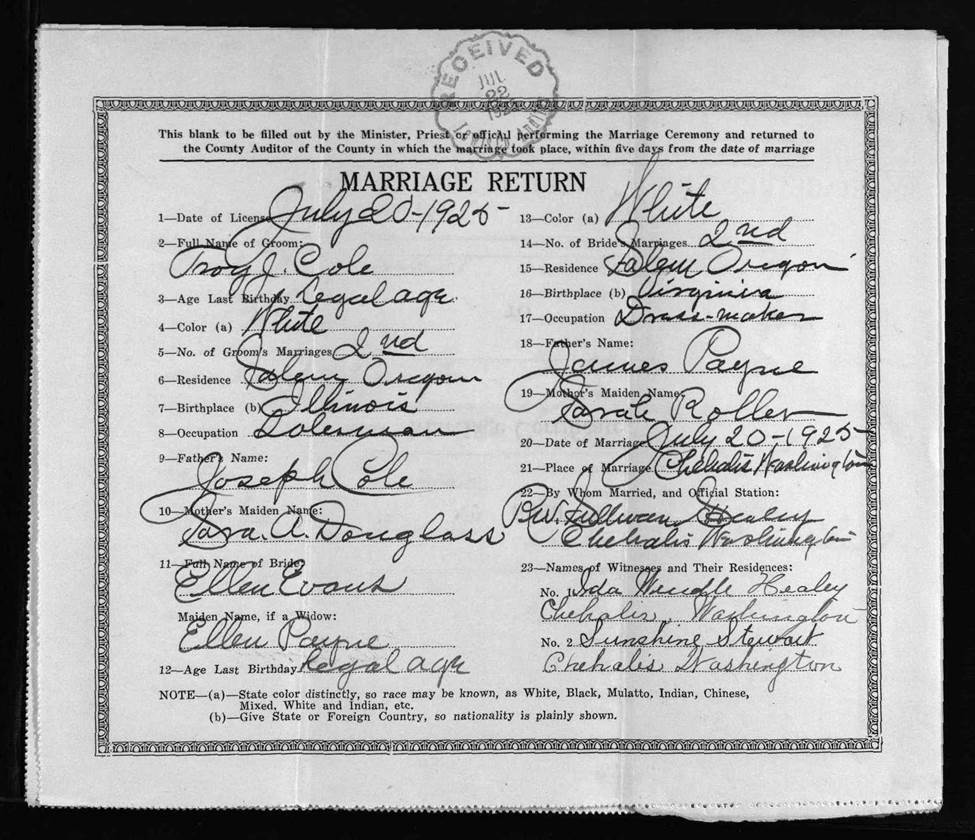 RECEIVED
JUL
22
This blank to be filled out by the Minister, Priest or official performing the Marriage Ceremony and returned to
the County Auditor of the County in which the marriage took place, within five days from the date of marriage
MARRIAGE RETURN
1—Date of License July 20-1925-
2—Full Name of Groom:
Troy J. Cole
3—Age Last Birthday Legal age.
4—Color (a) White
5—No. of Groom's Marriages 2nd
6—Residence Salem Oregon
7—Birthplace (b) Illinois
8—Occupation Salesman
9—Father's Name:
Joseph Cole
10—Mother's Maiden Name:
A. Douglass
11—Full Name of Bride:
Ellen Evans
Maiden Name, if a Widow:
Ellen Payne
12—Age Last Birthday Legal age
13—Color (a) White
14—No. of Bride's Marriages 2nd
15—Residence Salem Oregon
16—Birthplace (b) Virginia
17—Occupation Dress-maker
18—Father's Name:
James Payne
19—Mother's Maiden Name:
Sarah Roller
20—Date of Marriage July 20-1925-
21—Place of Marriage Chehalis Washington
22—By Whom Married, and Official Station:
R.W. Sullivan Healey
Chehalis Washington
23—Names of Witnesses and Their Residences:
No. 1 Ida Healey
Chehalis, Washington
No. 2 Sunshine Stewart
Chehalis Washington
NOTE—(a)—State color distinctly, so race may be known, as White, Black, Mulatto, Indian, Chinese,
Mixed, White and Indian, etc.
(b)—Give State or Foreign Country, so nationality is plainly shown.